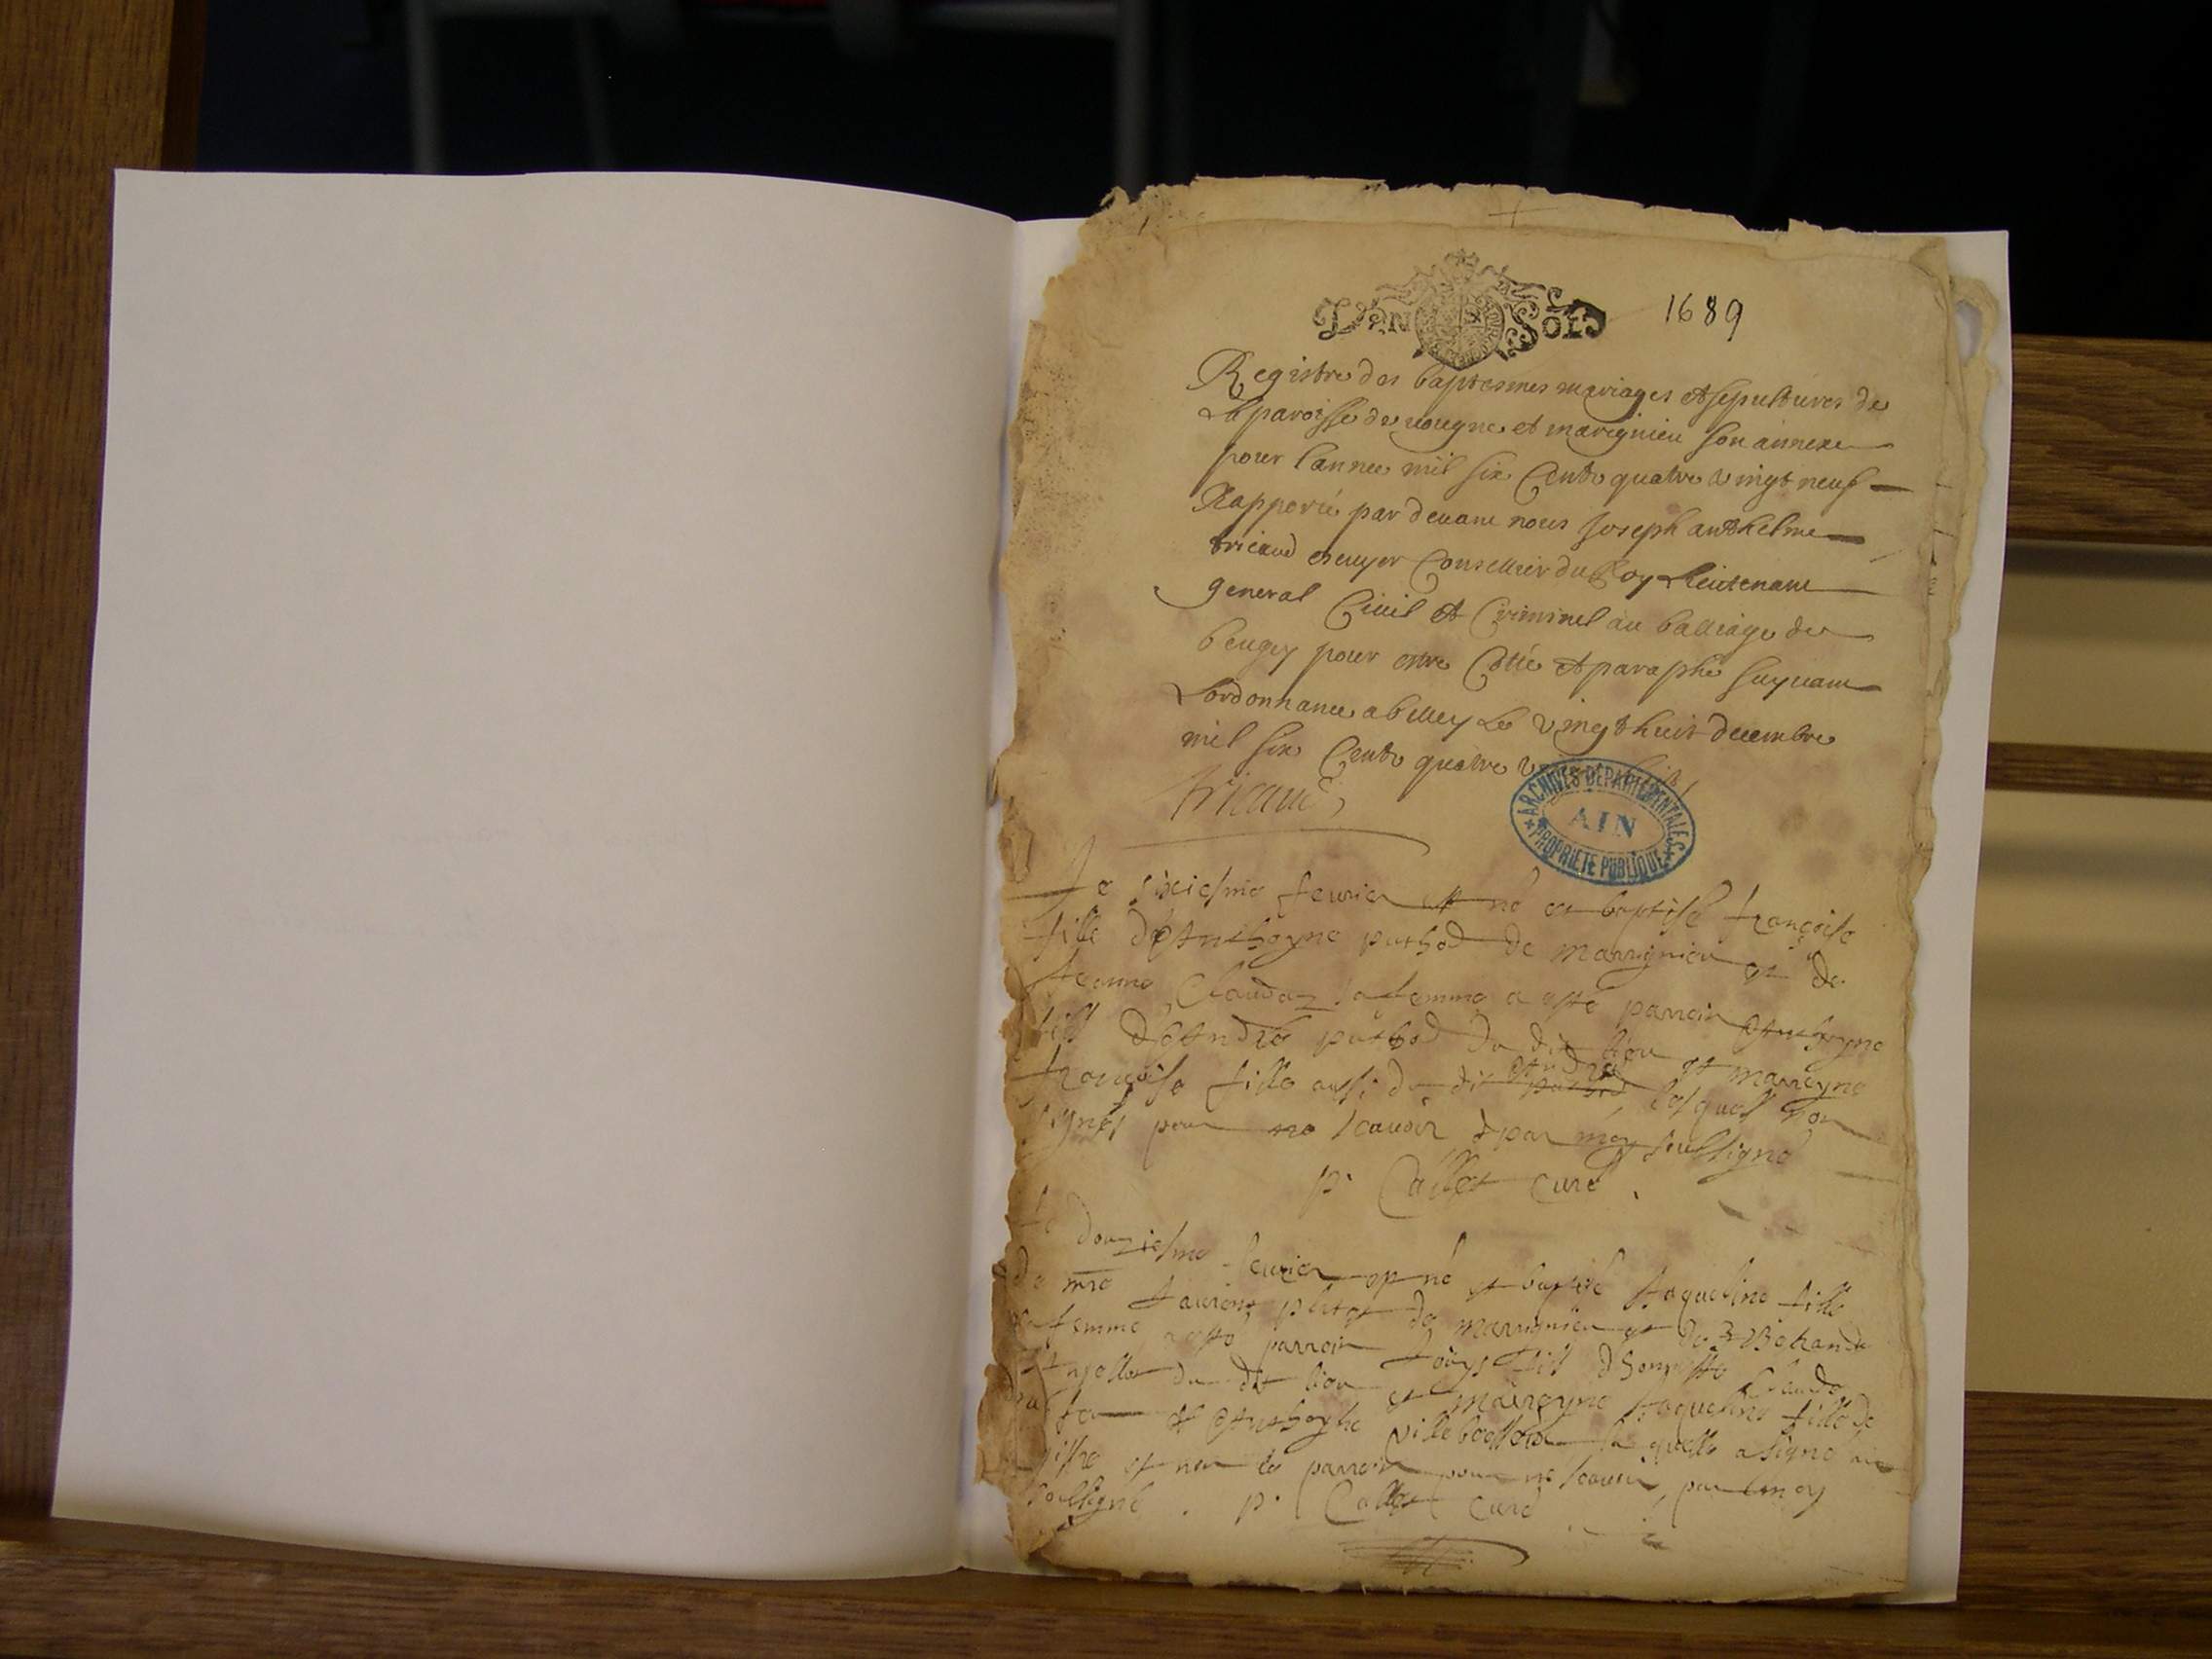 VN SOLS
1689
Registre des baptesmes mariages et sepultures de
la paroisse de uougne et marignieu son annexe
pour l'annee mil six Cents quatre vingt neuf
Rapporté par deuant nous Joseph anthelme
tricaud escuyer Conseiller du Roy Lieutenant
general Ciuil et Criminel au balliage de
beugey pour estre Cotté et paraphé suyuant
Lordonnance a belley Le vingt huit decembre
mil six Cents quatre
tricaud
ARCHIVES DÉPARTEMENTALES
AIN
PROPRIÉTÉ PUBLIQUE
Le sixiesme feurier est né et baptisé françoise
fille d'Anthoyne puthod de marrignieu et de
Jeanne sa femme a esté parrain Anthoyne
fils d'André puthod du dit lieu et marreyne
françoise fille aussi du dit André puthod lesquels non
signés pour ne scauoir par moy soussigné
p. Callet curé
Le douziesme feurier est né et baptisé Jaqueline fille
de mre de marrignieu et de
sa femme a esté parrain Louys fils d'honneste Claude
du dit lieu et marreyne Jaqueline fille de
Anthoyne laquelle a signé
et non le parrain pour ne scauoir, par moy
soussigné . p. Callet curé